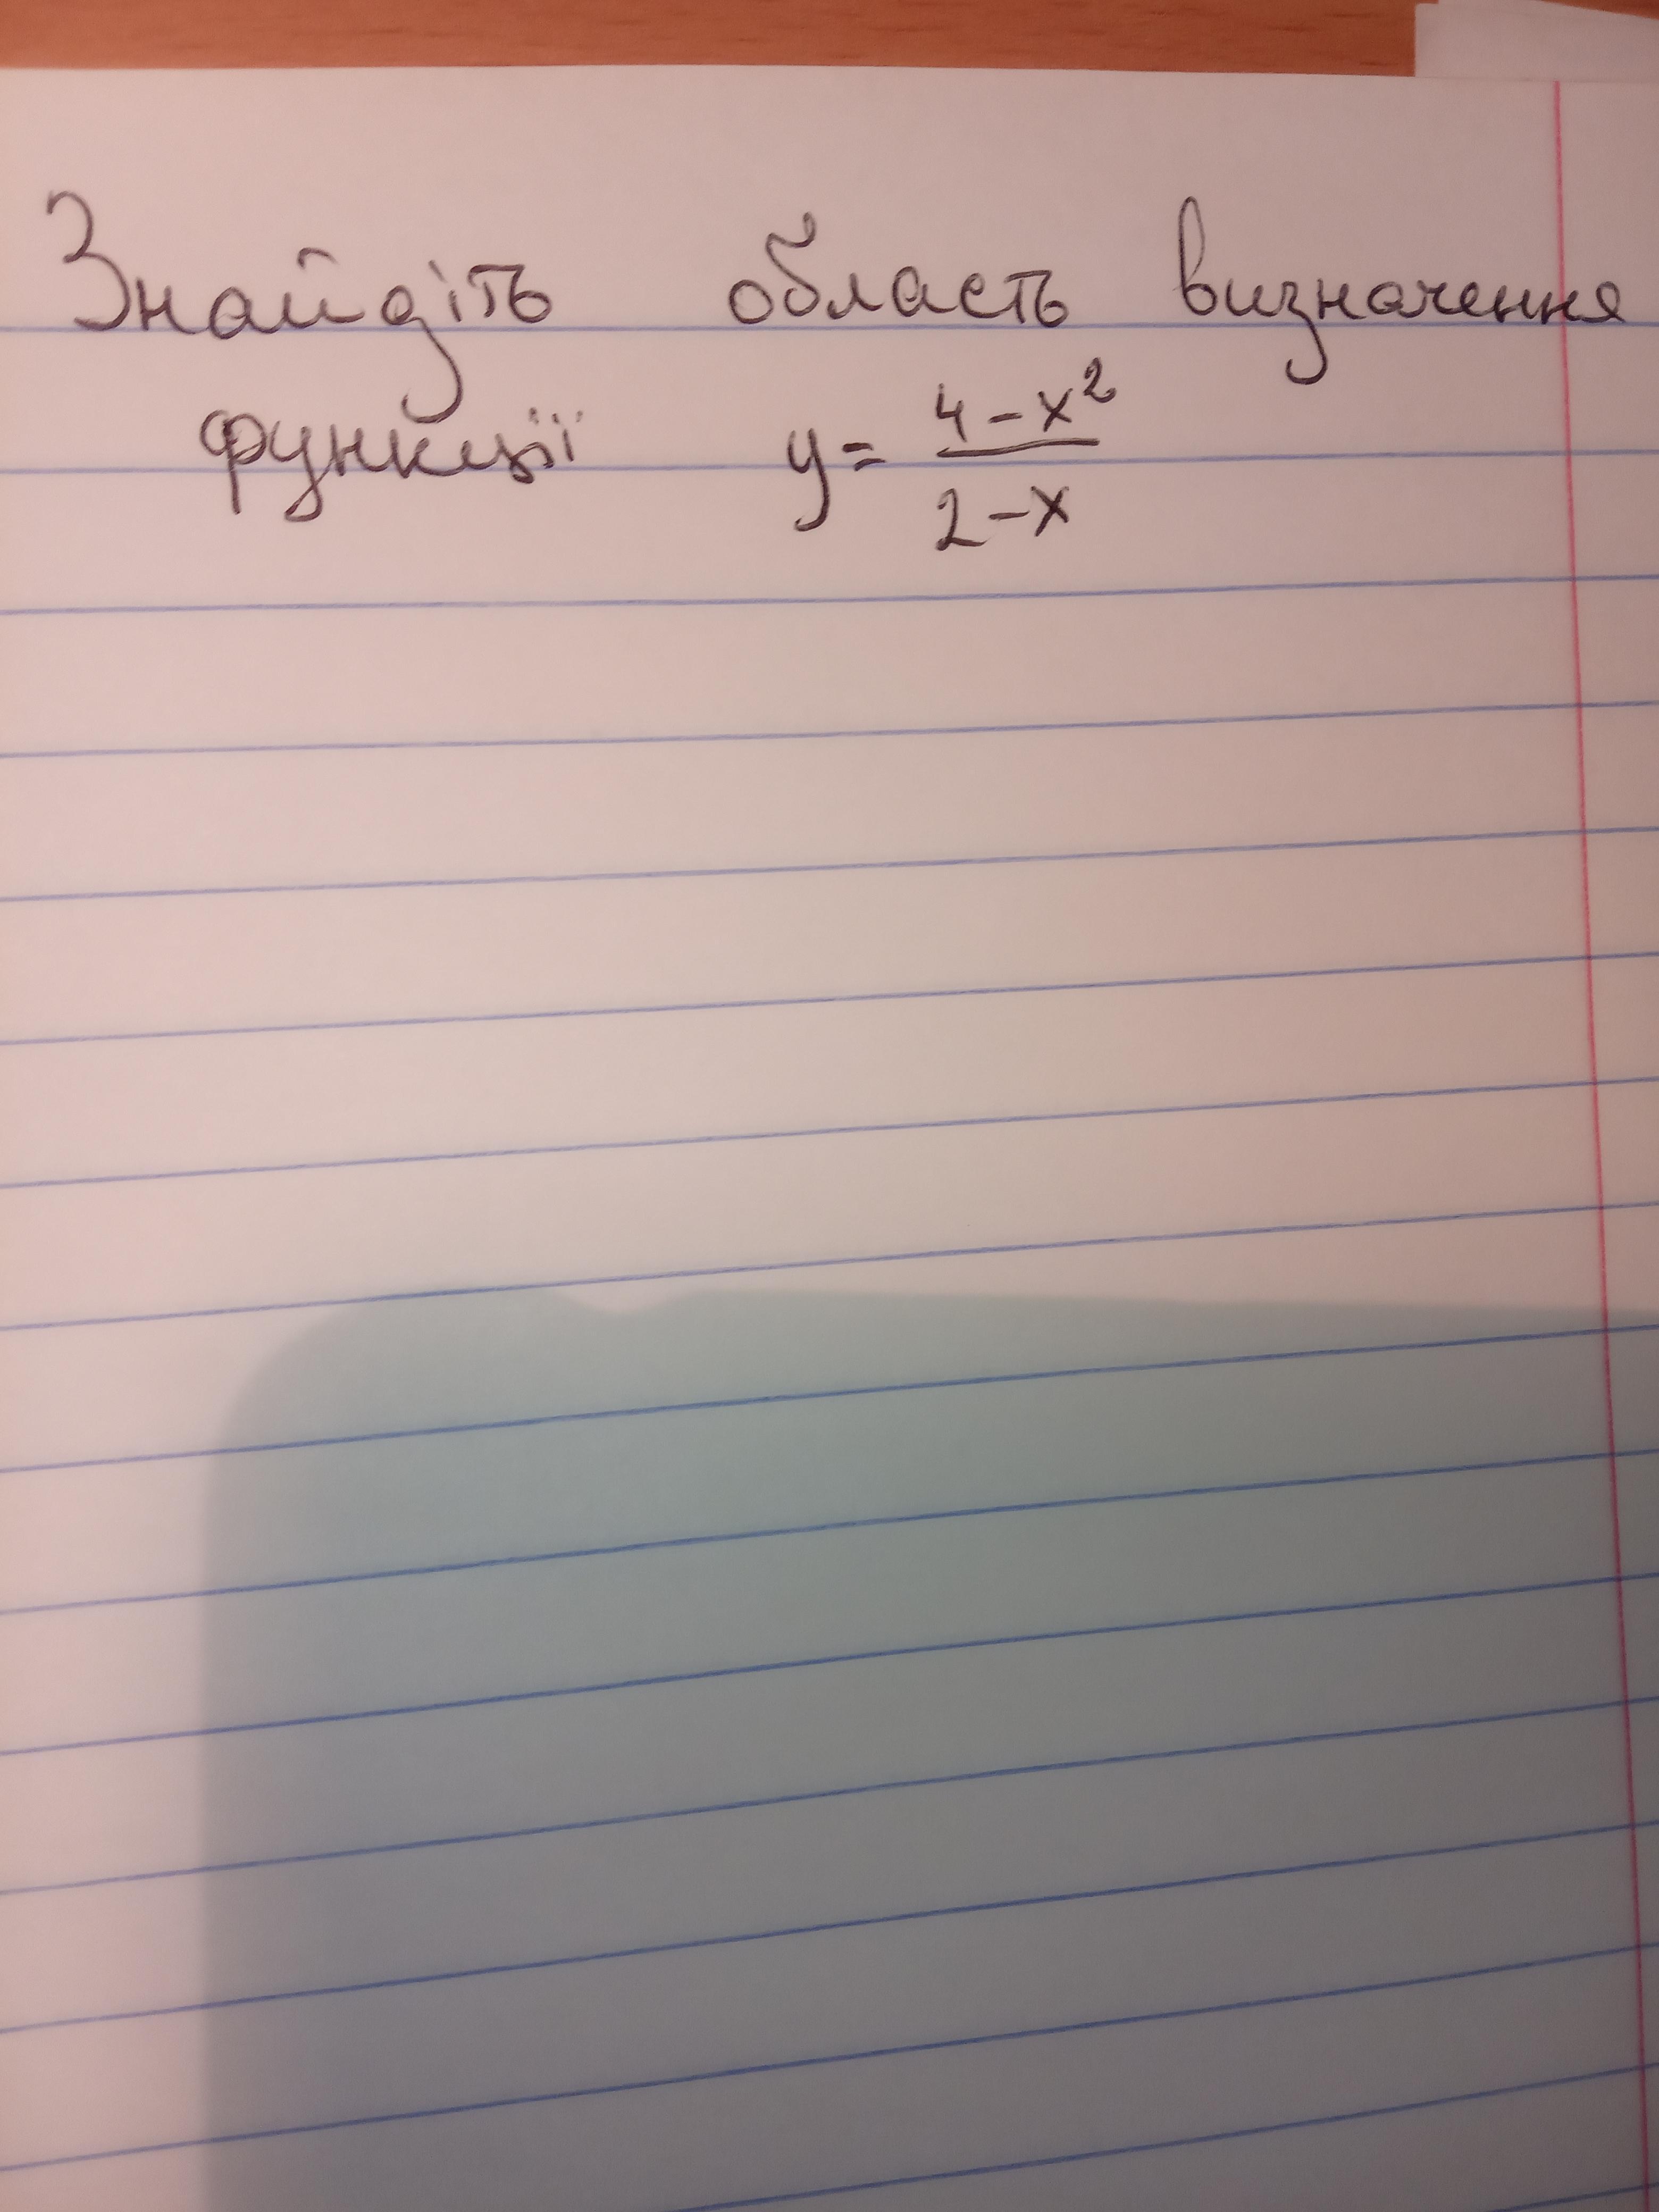 Знайдіть область визначення
функції y = \frac{4-x^2}{2-x}